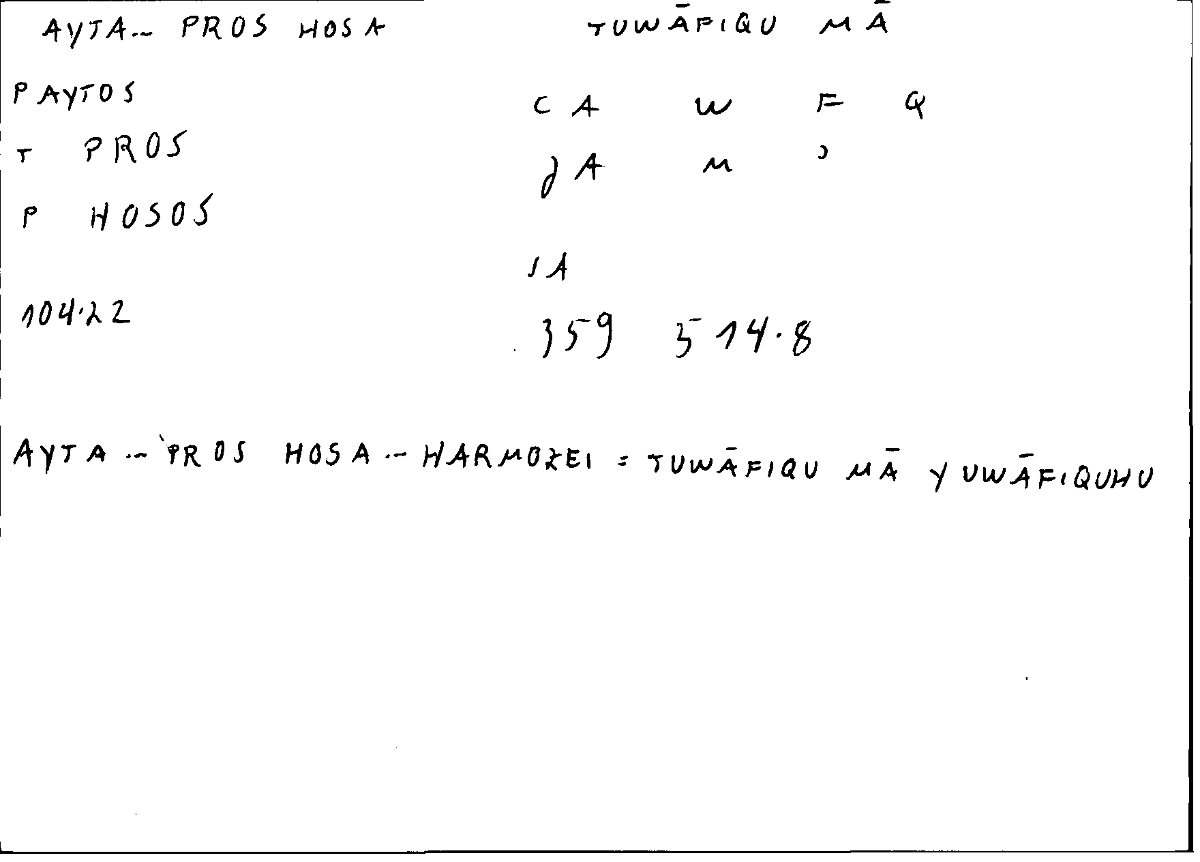 AYTA.– PROS HOSA TUWĀFIQU MĀ
P AYTOS C A W F Q
T PROS J A M ʾ
P HOSOS
1 A
104.22 359 514.8
AYTA.– PROS HOSA.– HARMOZEI = TUWĀFIQU MĀ YUWĀFIQUHU